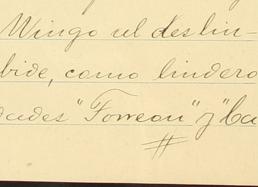 Wingo el deslin-
bide, como lindero
dades "Torreon" y "La